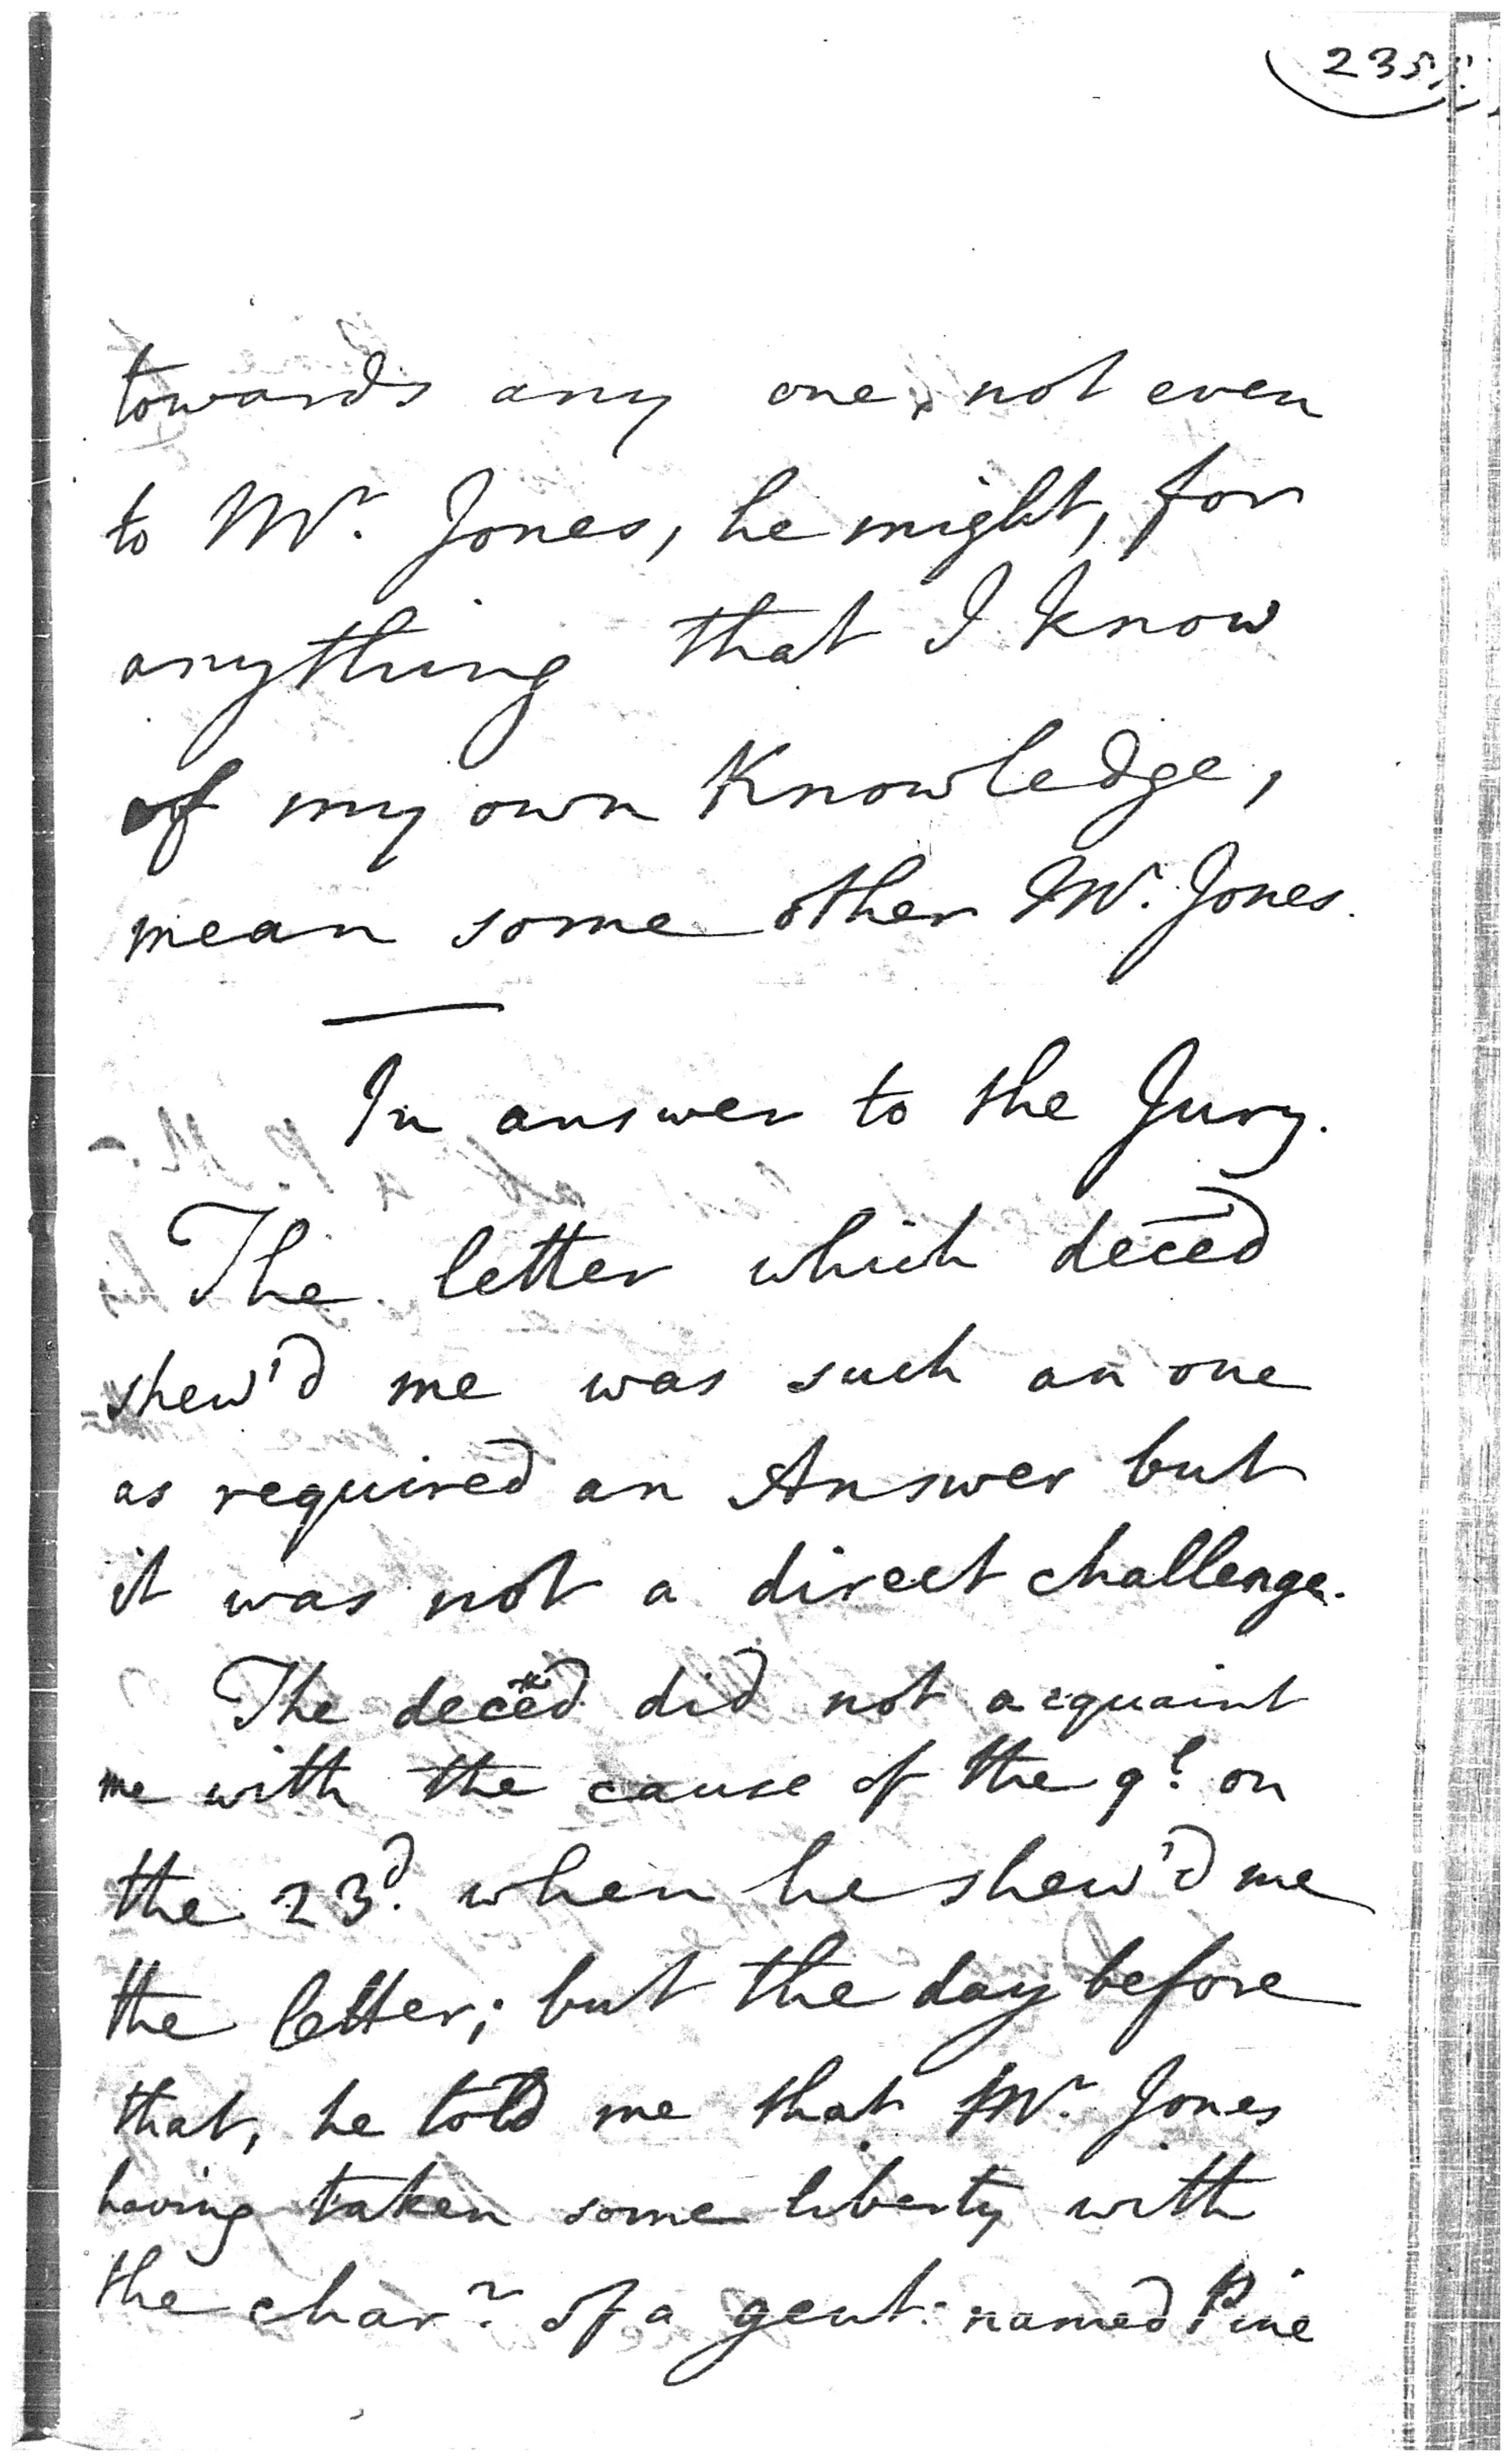 235
towards any one, not even
to Mr. Jones, he might, for
anything that I know
of my own Knowledge,
mean some other Mr. Jones.
In answer to the Jury.
The letter which deced
shew'd me was such an one
as required an Answer but
it was not a direct challenge.
The deced did not acquaint
me with the cause of the ql. on
the 23d. when he shew'd me
the letter; but the day before
that, he told me that Mr. Jones
having taken some liberty with
the charr. of a gent: named Pine